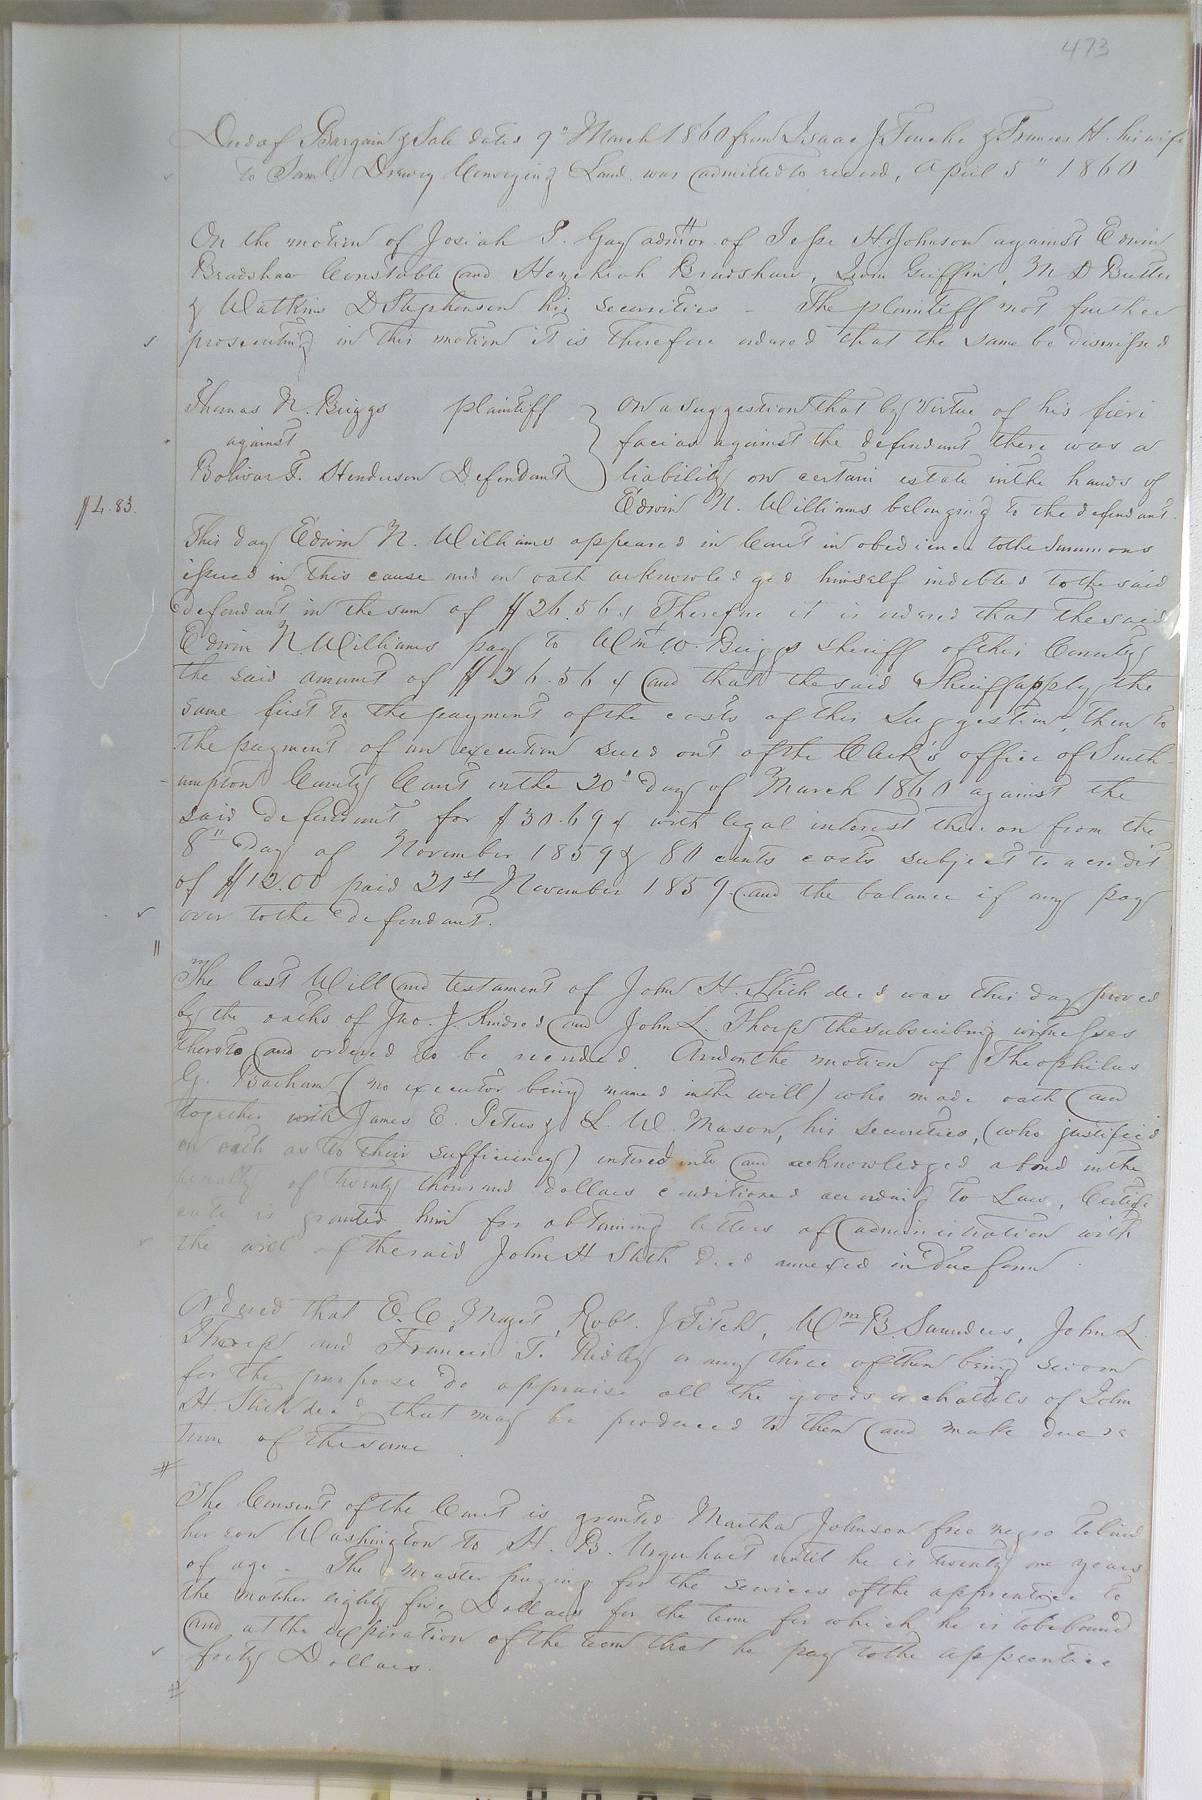 473
Deed of Bargain & Sale dated 9" March 1860 from Isaac J. & Frances H. his wife
to Saml. Drewry Conveying Land was admitted to record, April 5" 1860
On the motion of Josiah P. Gay admtor of Jesse H. Johnson against Edwin
Bradshaw Constable and Hezekiah Bradshaw, Griffin, M D Butler
& Watkins D Stephenson his securities - The plaintiff not further
prosecuting in this motion it is therefore ordered that the same be dismissed
Thomas N. Briggs plaintiff
against
Bolivar F. Henderson Defendant
On a suggestion that by Virtue of his fieri
facias against the defendant there was a
liability on certain estate in the hands of
Edwin N. Williams belonging to the defendant.
$4.83.
This day Edwin N. Williams appeared in Court in obedience to the Summons
issued in this cause and on oath acknowledged himself indebted to the said
defendant in the sum of $26.56 ¢ Therefore it is ordered that the said
Edwin N. Williams pay to Wm. W. Briggs sheriff of this County
the said amount of $26.56 ¢ and that the said Sheriff apply the
same first to the payment of the costs of this Suggestion, then to
the payment of an execution sued out of the Clerk's office of South-
ampton County Court on the 20" day of March 1860 against the
said defendant for $30.69 ¢ with legal interest thereon from the
8" Day of November 1859 & 80 cents costs subject to a credit
of $12.00 paid 21st November 1859. and the balance if any pay
over to the defendant.
The last Will and testament of John H. Stith decd was this day proved
by the oaths of Jno. J. Kindred and John L. Thorp the subscribing witnesses
thereto and ordered to be recorded. And on the motion of Theophilus
G. Barham (no executor being named in the will) who made oath and
together with James E. Peters & L. W. Mason, his securities, (who justified
on oath as to their sufficiency) entered into and acknowledged a bond in the
penalty of twenty thousand dollars conditioned according to Law, Certifi
cate is granted him for obtaining letters of administration with
the will of the said John H Stith decd annexed in due form.
Ordered that E. C. Robt. J Fitch, Wm B. Saunders, John L.
Thorp and Francis T. Ridley or any three of them being sworn
for the purpose do appraise all the goods or chattels of John
H. Stith decd that may be produced to them and make due re
turn of the same.
The Consent of the Court is granted Martha Johnson free negro to bind
her son Washington to H. B. Urquhart until he is twenty one years
of age - The master paying for the services of the apprentice to
the mother eighty five Dollars for the term for which he is to be bound
and at the expiration of the term that he pay to the apprentice
forty Dollars.